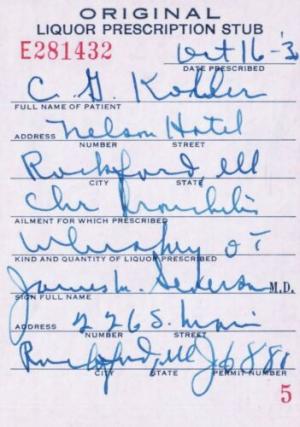 ORIGINAL
LIQUOR PRESCRIPTION STUB
E281432 Oct 16-30
DATE PRESCRIBED
C. G. Kohler
FULL NAME OF PATIENT
Nelson Hotel
ADDRESS NUMBER STREET
Rockford, Ill
CITY STATE
Chr bronchitis
AILMENT FOR WHICH PRESCRIBED
Whiskey
KIND AND QUANTITY OF LIQUOR PRESCRIBED
James M. M.D.
SIGN FULL NAME
226 S. Main
ADDRESS NUMBER STREET
Rockford, Ill
CITY STATE PERMIT NUMBER
5